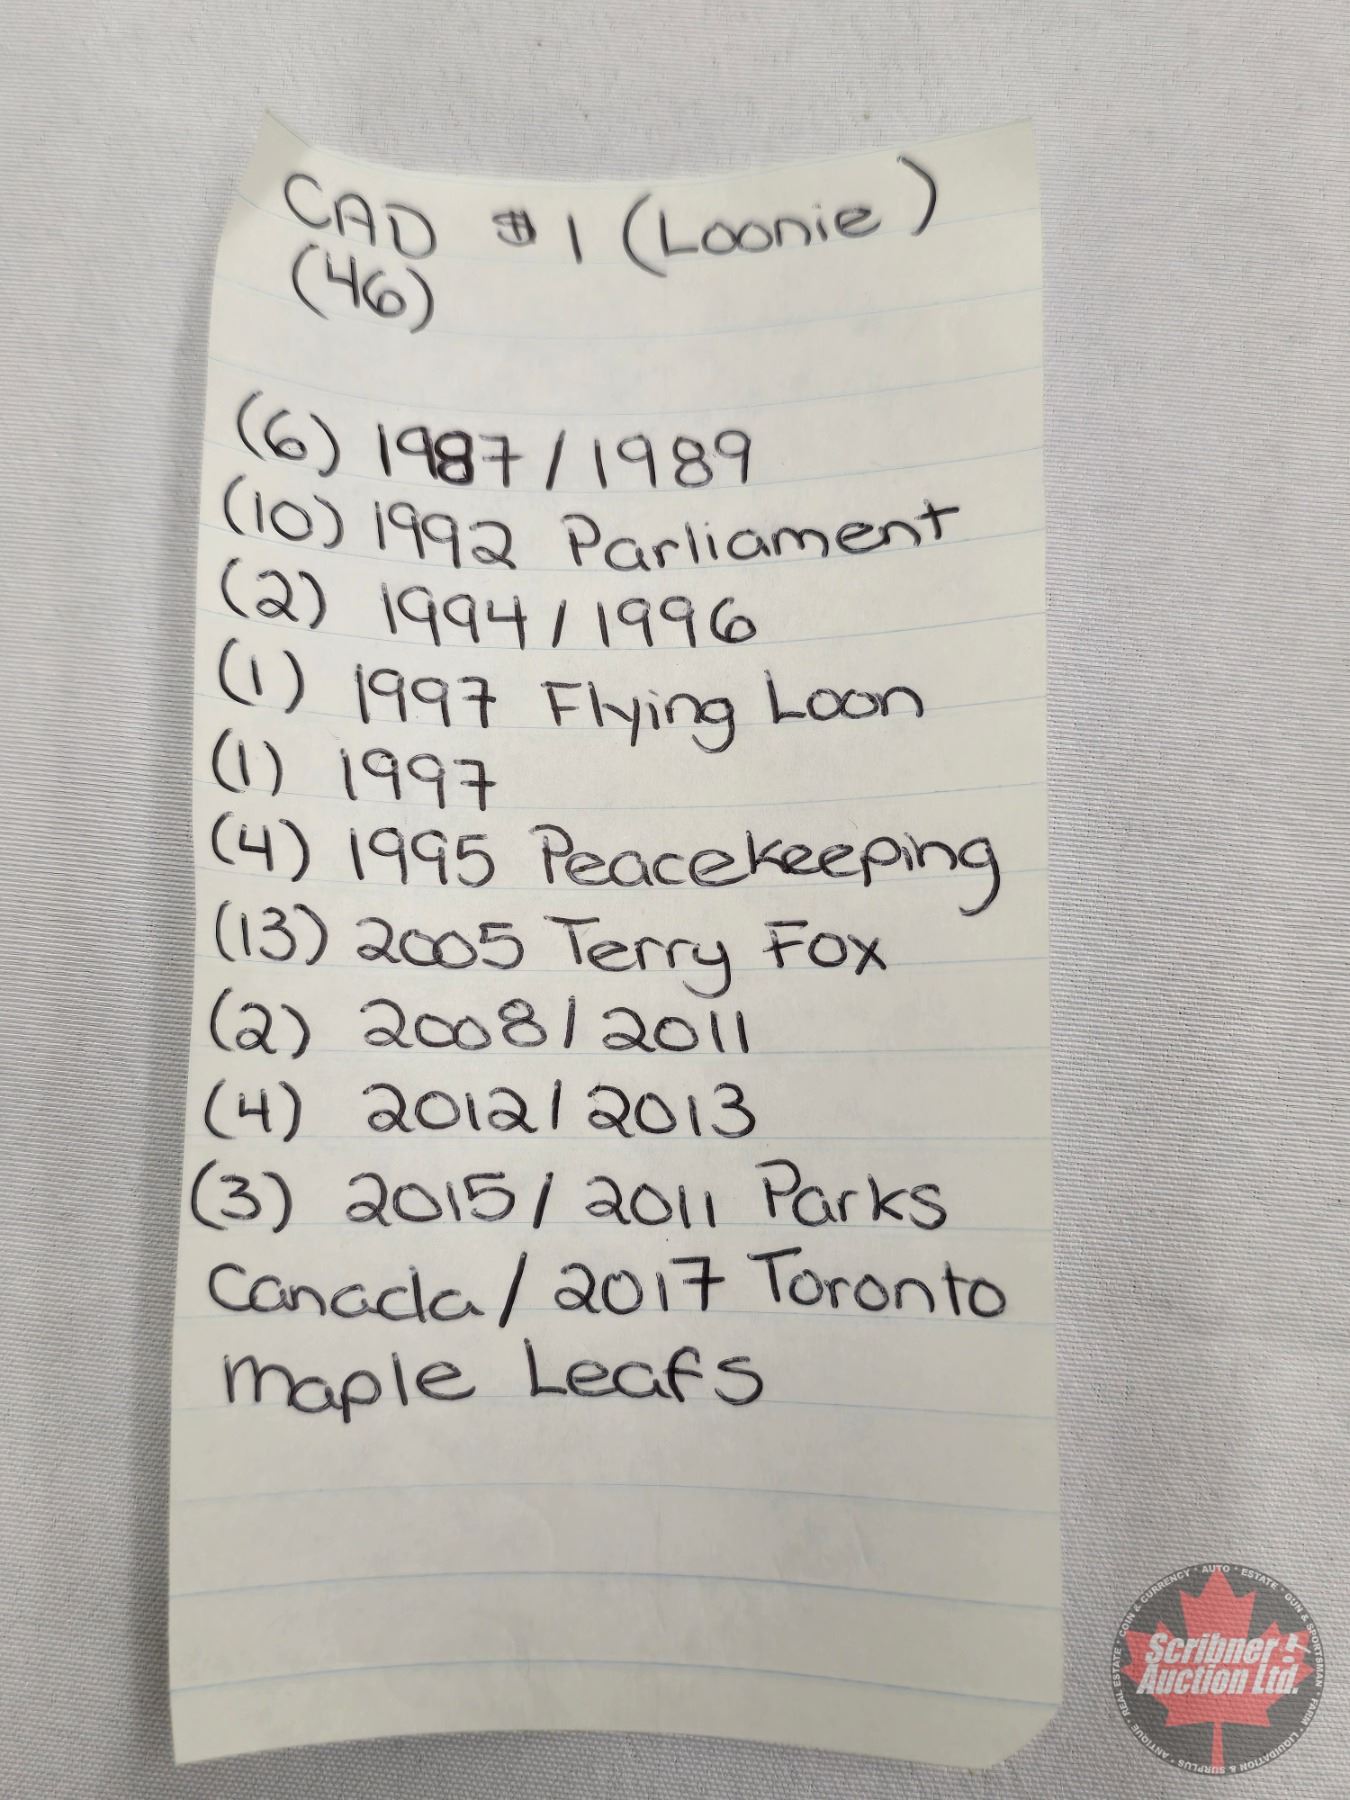 CAD $1 (Loonie)
(46)
(6) 1987/1989
(10) 1992 Parliament
(2) 1994/1996
(1) 1997 Flying Loon
(1) 1997
(4) 1995 Peacekeeping
(13) 2005 Terry Fox
(2) 2008/2011
(4) 2012/2013
(3) 2015/2011 Parks
Canada/2017 Toronto
maple Leafs
COIN & CURRENCY * AUTO * ESTATE * GUN & SPORTSMAN * FARM * LIQUIDATION & SURPLUS * ANTIQUE * REAL ESTATE *
Scribner
Auction Ltd.